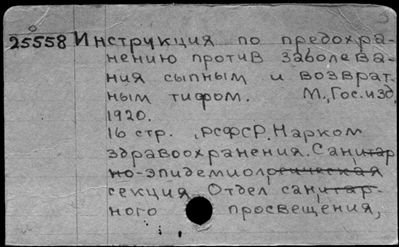 25558 Инструкция по предохра-
нению против заболева-
ния сыпным и возврат-
ным тифом. М., Гос. изд.
1920.
16 стр. , РСФСР. Нарком
здравоохранения. Санитар
но-эпидемиологическая
секция. Отдел санитар-
ного просвещения,